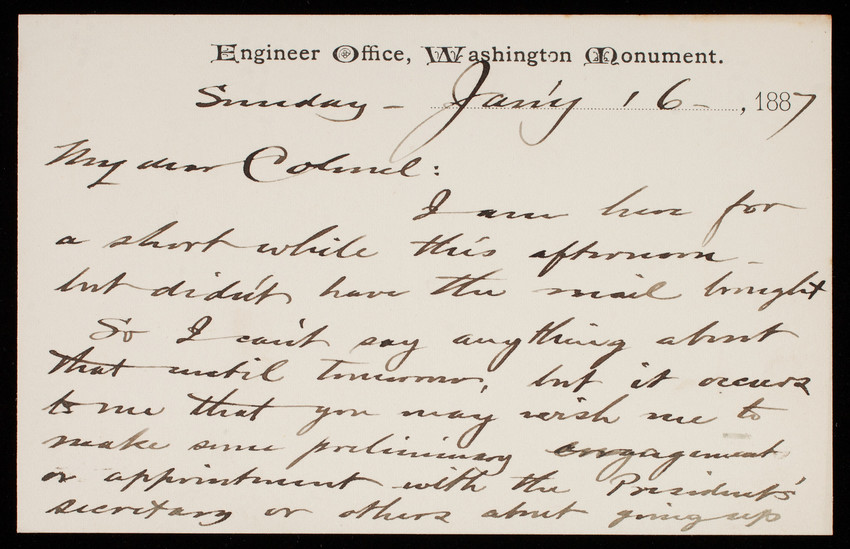 Engineer Office, Washington Monument.
Sunday - Jan'y 16 -, 1887
My dear Colonel:
I am here for
a short while this afternoon -
but didn't have the mail brought
So I can't say anything about
that until tomorrow, but it occurs
to me that you may wish me to
make some preliminary engagement
or appointment with the President's
secretary or others about going up